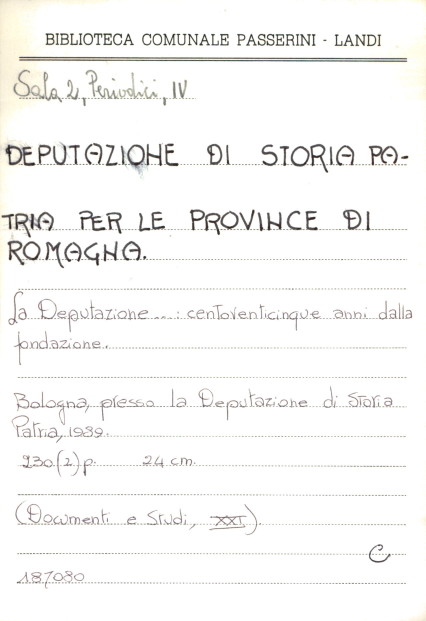 BIBLIOTECA COMUNALE PASSERINI - LANDI
Sala 2, Periodici, IV
DEPUTAZIONE DI STORIA PA-
TRIA PER LE PROVINCE DI
ROMAGNA.
La Deputazione....: centoventicinque anni dalla
fondazione.
Bologna, presso la Deputazione di Storia
Patria, 1989.
230 (2) p. 24 cm.
(Documenti e Studi, XXI).
C
187080